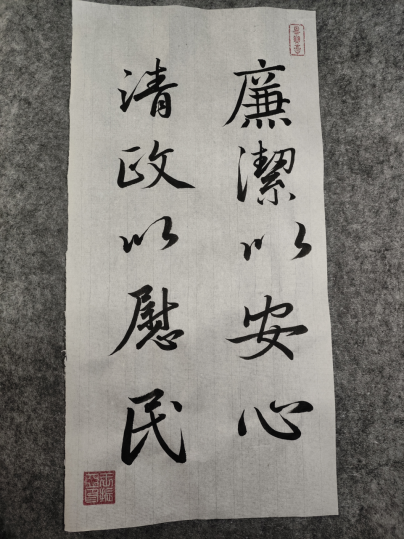 廉潔以安心
清政以慰民